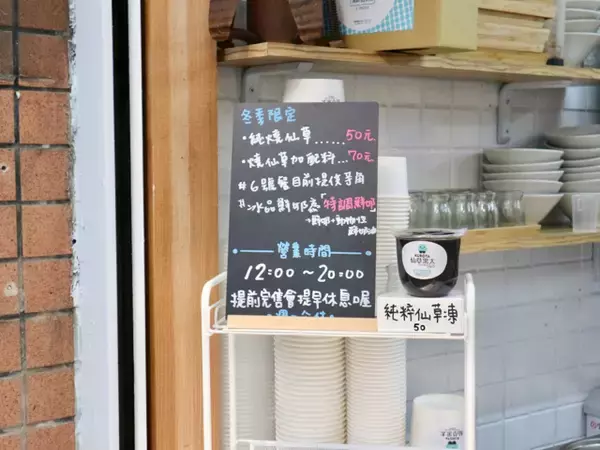 冬季限定
·純燒仙草......50元
·燒仙草加配料...70元
#6號餐目前提供芋角
冰品對鮮奶為「特調鮮奶」
→鮮奶+動物性
鮮奶油
營業時間
12:00~20:00
提前完售會提早休息喔
KUROTA
仙草黑天
純粹仙草凍
50